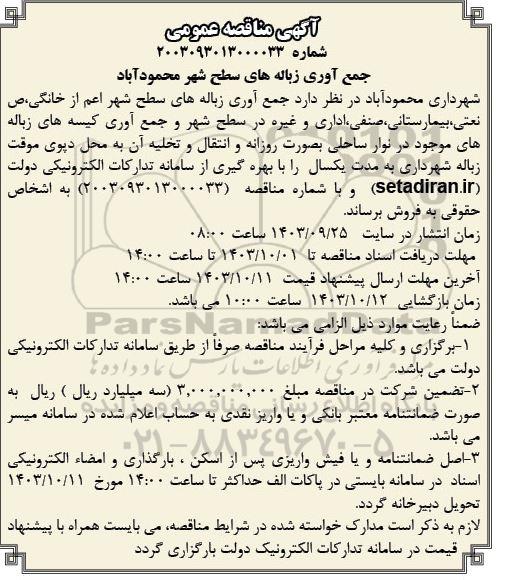 آگهی مناقصه عمومی
شماره ۲۰۰۳۰۹۳۰۱۳۰۰۰۰۳۳
جمع آوری زباله های سطح شهر محمودآباد
شهرداری محمودآباد در نظر دارد جمع آوری زباله های سطح شهر اعم از خانگی،ص
نعتی،بیمارستانی،صنفی،اداری و غیره در سطح شهر و جمع آوری کیسه های زباله
های موجود در نوار ساحلی بصورت روزانه و انتقال و تخلیه آن به محل دپوی موقت
زباله شهرداری به مدت یکسال را با بهره گیری از سامانه تدارکات الکترونیکی دولت
(setadiran.ir) و با شماره مناقصه (۲۰۰۳۰۹۳۰۱۳۰۰۰۰۳۳) به اشخاص
حقوقی به فروش برساند.
زمان انتشار در سایت ۱۴۰۳/۰۹/۲۵ ساعت ۰۸:۰۰
مهلت دریافت اسناد مناقصه تا ۱۴۰۳/۱۰/۰۱ تا ساعت ۱۴:۰۰
آخرین مهلت ارسال پیشنهاد قیمت ۱۴۰۳/۱۰/۱۱ ساعت ۱۴:۰۰
زمان بازگشایی ۱۴۰۳/۱۰/۱۲ ساعت ۱۰:۰۰ می باشد.
ضمناً رعایت موارد ذیل الزامی می باشد:
۱-برگزاری و کلیه مراحل فرآیند مناقصه صرفاً از طریق سامانه تدارکات الکترونیکی
دولت می باشد.
۲-تضمین شرکت در مناقصه مبلغ ۳,۰۰۰,۰۰۰,۰۰۰ (سه میلیارد ریال ) ریال به
صورت ضمانتنامه معتبر بانکی و یا واریز نقدی به حساب اعلام شده در سامانه میسر
می باشد.
۳-اصل ضمانتنامه و یا فیش واریزی پس از اسکن ، بارگذاری و امضاء الکترونیکی
اسناد در سامانه بایستی در پاکات الف حداکثر تا ساعت ۱۴:۰۰ مورخ ۱۴۰۳/۱۰/۱۱
تحویل دبیرخانه گردد.
لازم به ذکر است مدارک خواسته شده در شرایط مناقصه، می بایست همراه با پیشنهاد
قیمت در سامانه تدارکات الکترونیک دولت بارگزاری گردد
ParsNamadData
۰۲۱-۸۸۳۴۹۶۷۰-۵